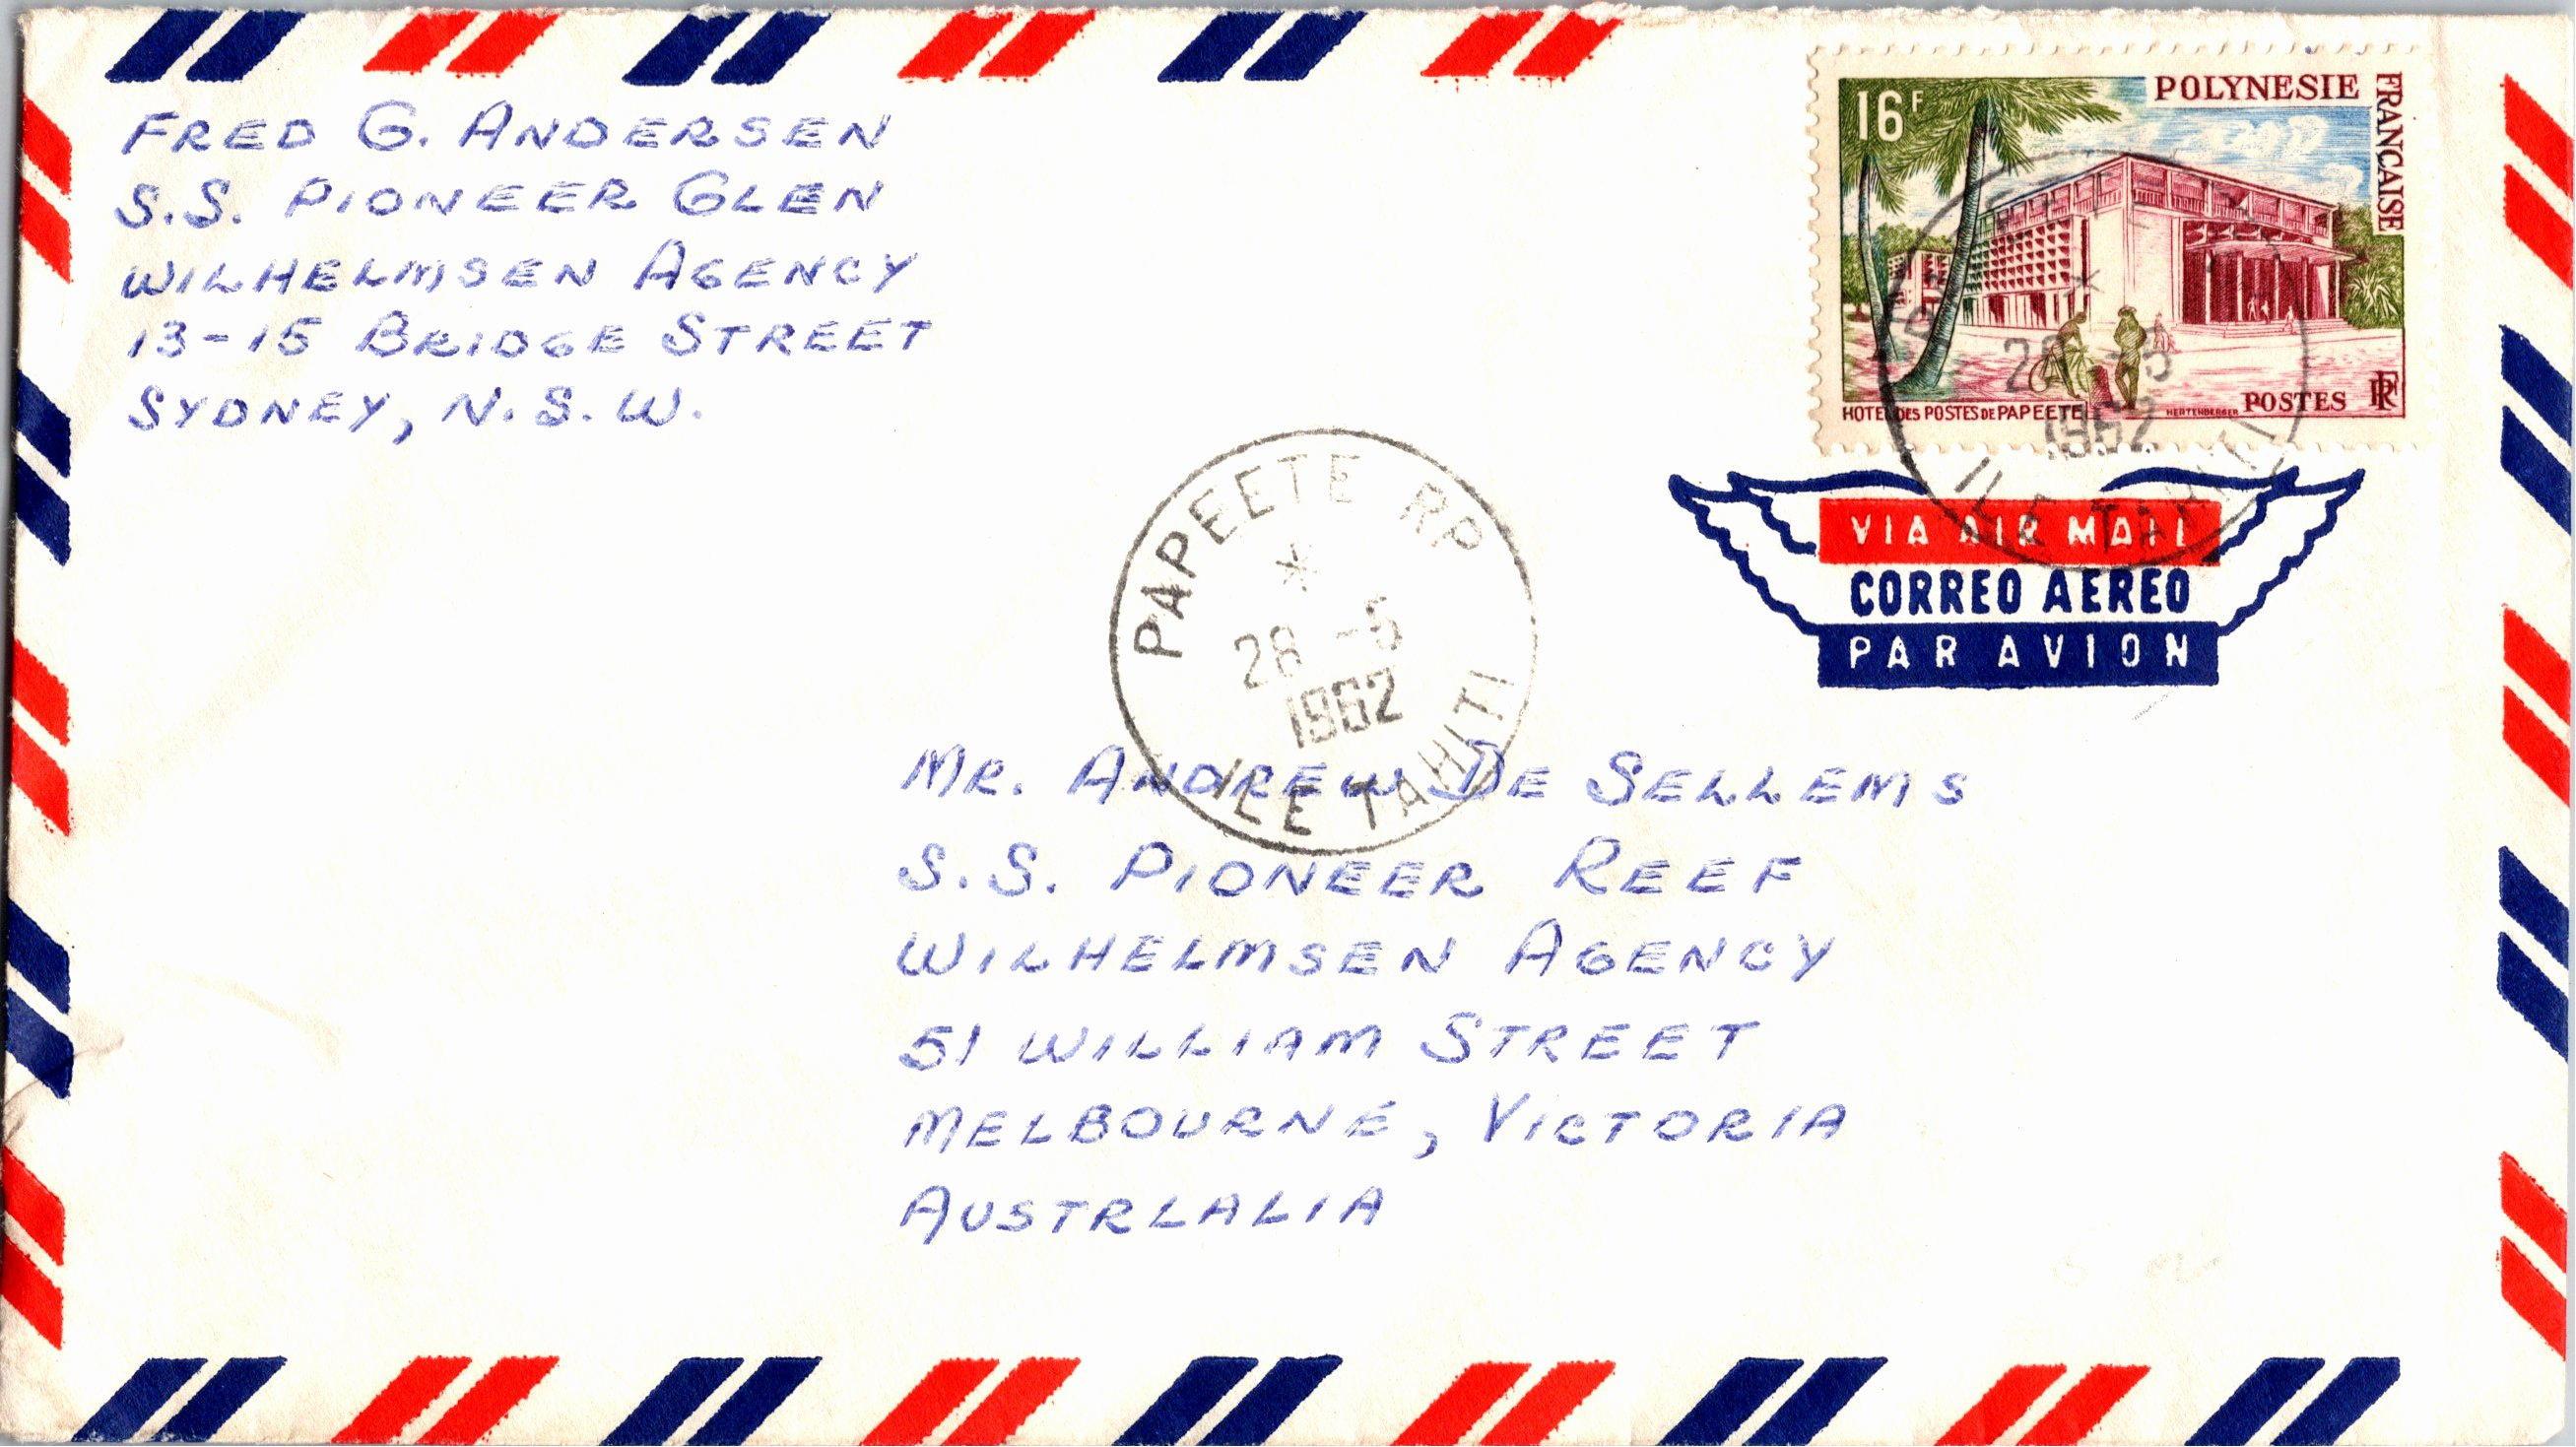 FRED G. ANDERSEN
S.S. PIONEER GLEN
WILHELMSEN AGENCY
13-15 BRIDGE STREET
SYDNEY, N.S.W.
16F
POLYNESIE
FRANCAISE
HOTEL DES POSTES DE PAPEETE
HERTENBERGER
POSTES
RF
28 -5
1962
ILE TAHITI
VIA AIR MAIL
CORREO AEREO
PAR AVION
PAPEETE RP
28 -5
1962
ILE TAHITI
MR. ANDREW DE SELLEMS
S.S. PIONEER REEF
WILHELMSEN AGENCY
51 WILLIAM STREET
MELBOURNE, VICTORIA
AUSTRLALIA